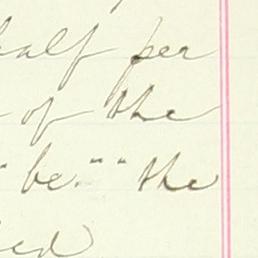 half per
of the
" be." " the
ed